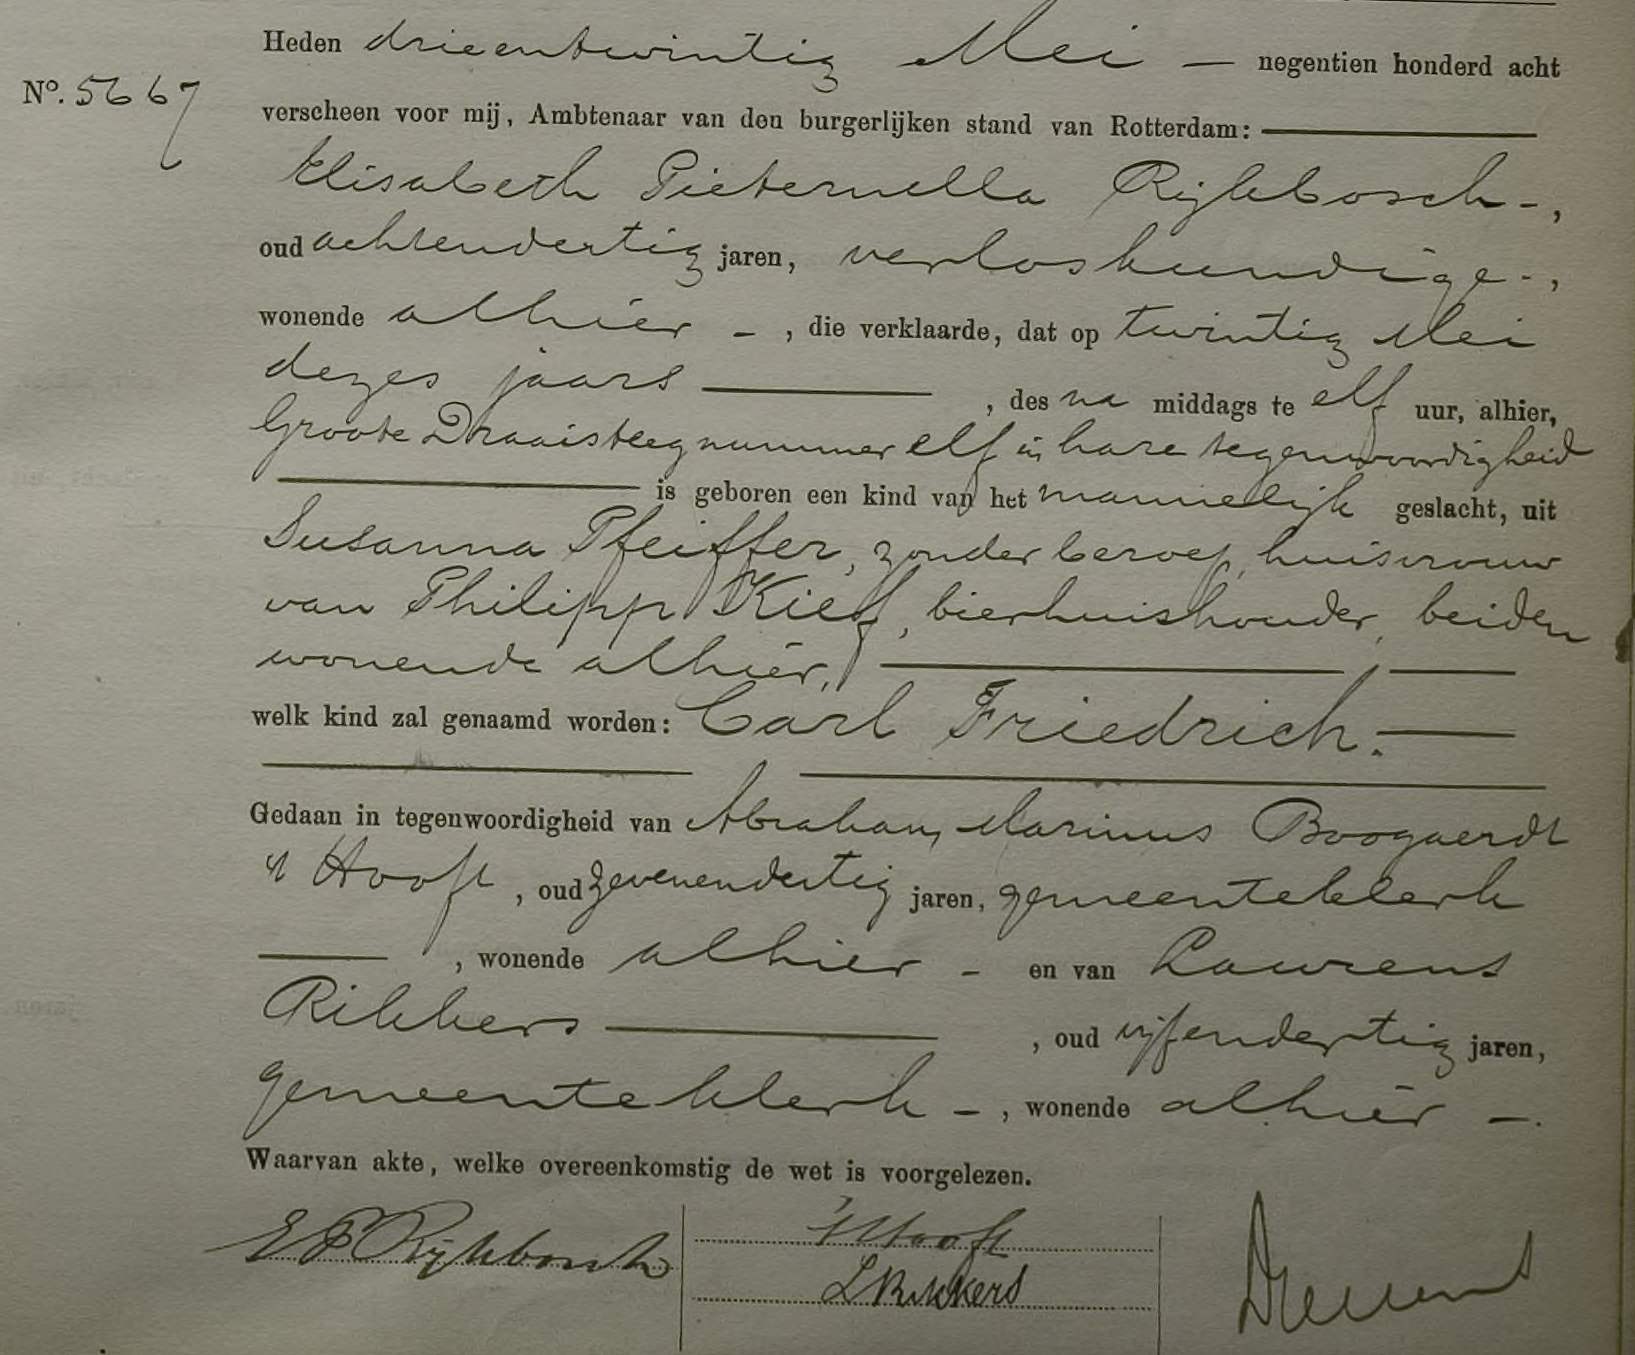 Heden drieentwintig Mei — negentien honderd acht
No. 5667
verscheen voor mij, Ambtenaar van den burgerlijken stand van Rotterdam:
Elisabeth Pieternella Rijkbosch -,
oud achtendertig jaren, verloskundige -,
wonende alhier - , die verklaarde, dat op twintig Mei
dezes jaars , des na middags te elf uur, alhier,
Groote Draaisteeg nummer elf in hare tegenwoordigheid
is geboren een kind van het mannelijk geslacht, uit
Susanna Pfeiffer, zonder beroep, huisvrouw
van Philipp Kief, bierhuishouder, beiden
wonende alhier,
welk kind zal genaamd worden: Carl Friedrich.
Gedaan in tegenwoordigheid van Abraham Marinus Boogaerdt
't Hooft, oud zevenendertig jaren, gemeenteklerk
, wonende alhier - en van Laurens
Rikkers , oud vijfendertig jaren,
gemeenteklerk - , wonende alhier -.
Waarvan akte, welke overeenkomstig de wet is voorgelezen.
E P Rijkbosch
't Hooft
L Rikkers